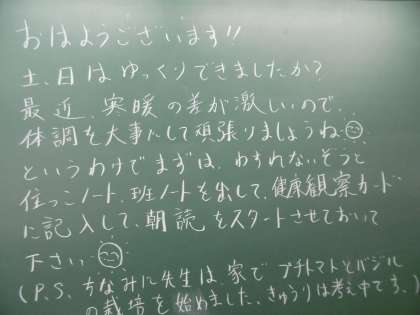 おはようございます!!
土、日はゆっくりできましたか?
最近、寒暖の差が激しいので、
体調を大事にして頑張りましょうね
というわけでまずは、わすれないぞうと
住っこノート、班ノートを出して、健康観察カード
に記入して、朝読をスタートさせておいて
下さいっ
(P.S. ちなみに先生は、家でプチトマトとバジル
の栽培を始めました。きゅうりは考え中です。)